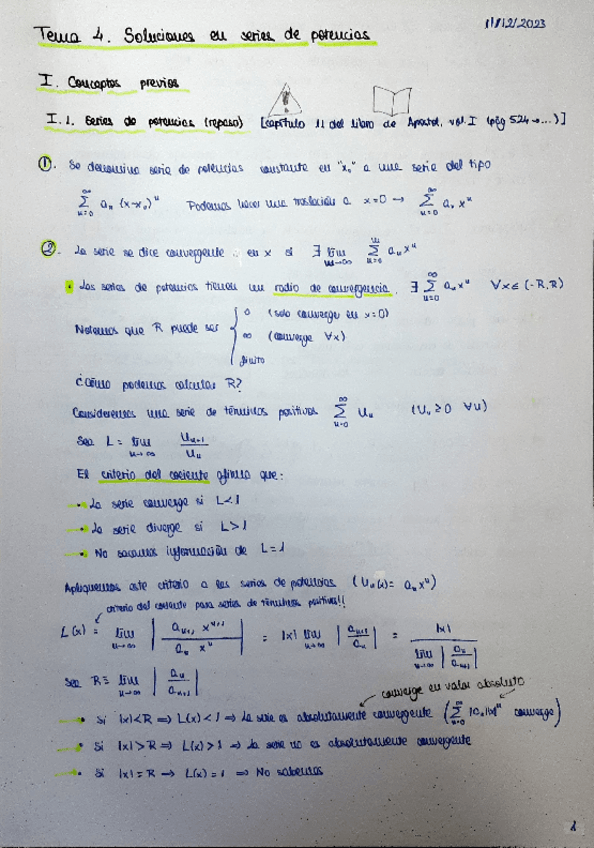 11/12/2023
Tema 4. Soluciones en series de potencias
I. Conceptos previos
I.1. Series de potencias (repaso) [capítulo 11 del libro de Apostol, vol. I (pág 524 → ...)]
①. Se denomina serie de potencias constante en "x₀" a una serie del tipo
∑_{n=0}^{∞} aₙ (x-x₀)ⁿ Podemos hacer una traslación a x=0 → ∑_{n=0}^{∞} aₙ xⁿ
②. La serie se dice convergente en x si ∃ lim_{m→∞} ∑_{n=0}^{m} aₙ xⁿ
Las series de potencias tienen un radio de convergencia. ∃ ∑_{n=0}^{∞} aₙ xⁿ ∀x ∈ (-R, R)
Notemos que R puede ser { 0 (solo converge en x=0)
∞ (converge ∀x)
finito
¿Cómo podemos calcular R?
Consideremos una serie de términos positivos ∑_{n=0}^{∞} Uₙ (Uₙ ≥ 0 ∀n)
Sea L = lim_{n→∞} Uₙ₊₁/Uₙ
El criterio del cociente afirma que:
• La serie converge si L<1
• La serie diverge si L>1
• No sacamos información de L=1
Apliquemos este criterio a las series de potencias (Uₙ(x) = aₙ xⁿ)
criterio del cociente para series de términos positivos!!
L(x) = lim_{n→∞} | aₙ₊₁ xⁿ⁺¹ / aₙ xⁿ | = |x| lim_{n→∞} | aₙ₊₁ / aₙ | = |x| / lim_{n→∞} | aₙ / aₙ₊₁ |
Sea R ≡ lim_{n→∞} | aₙ / aₙ₊₁ |
converge en valor absoluto
• Si |x|<R ⇒ L(x)<1 ⇒ La serie es absolutamente convergente (∑_{n=0}^{∞} |aₙ||x|ⁿ converge)
• Si |x|>R ⇒ L(x)>1 ⇒ La serie no es absolutamente convergente
• Si |x|=R ⇒ L(x)=1 ⇒ No sabemos
1